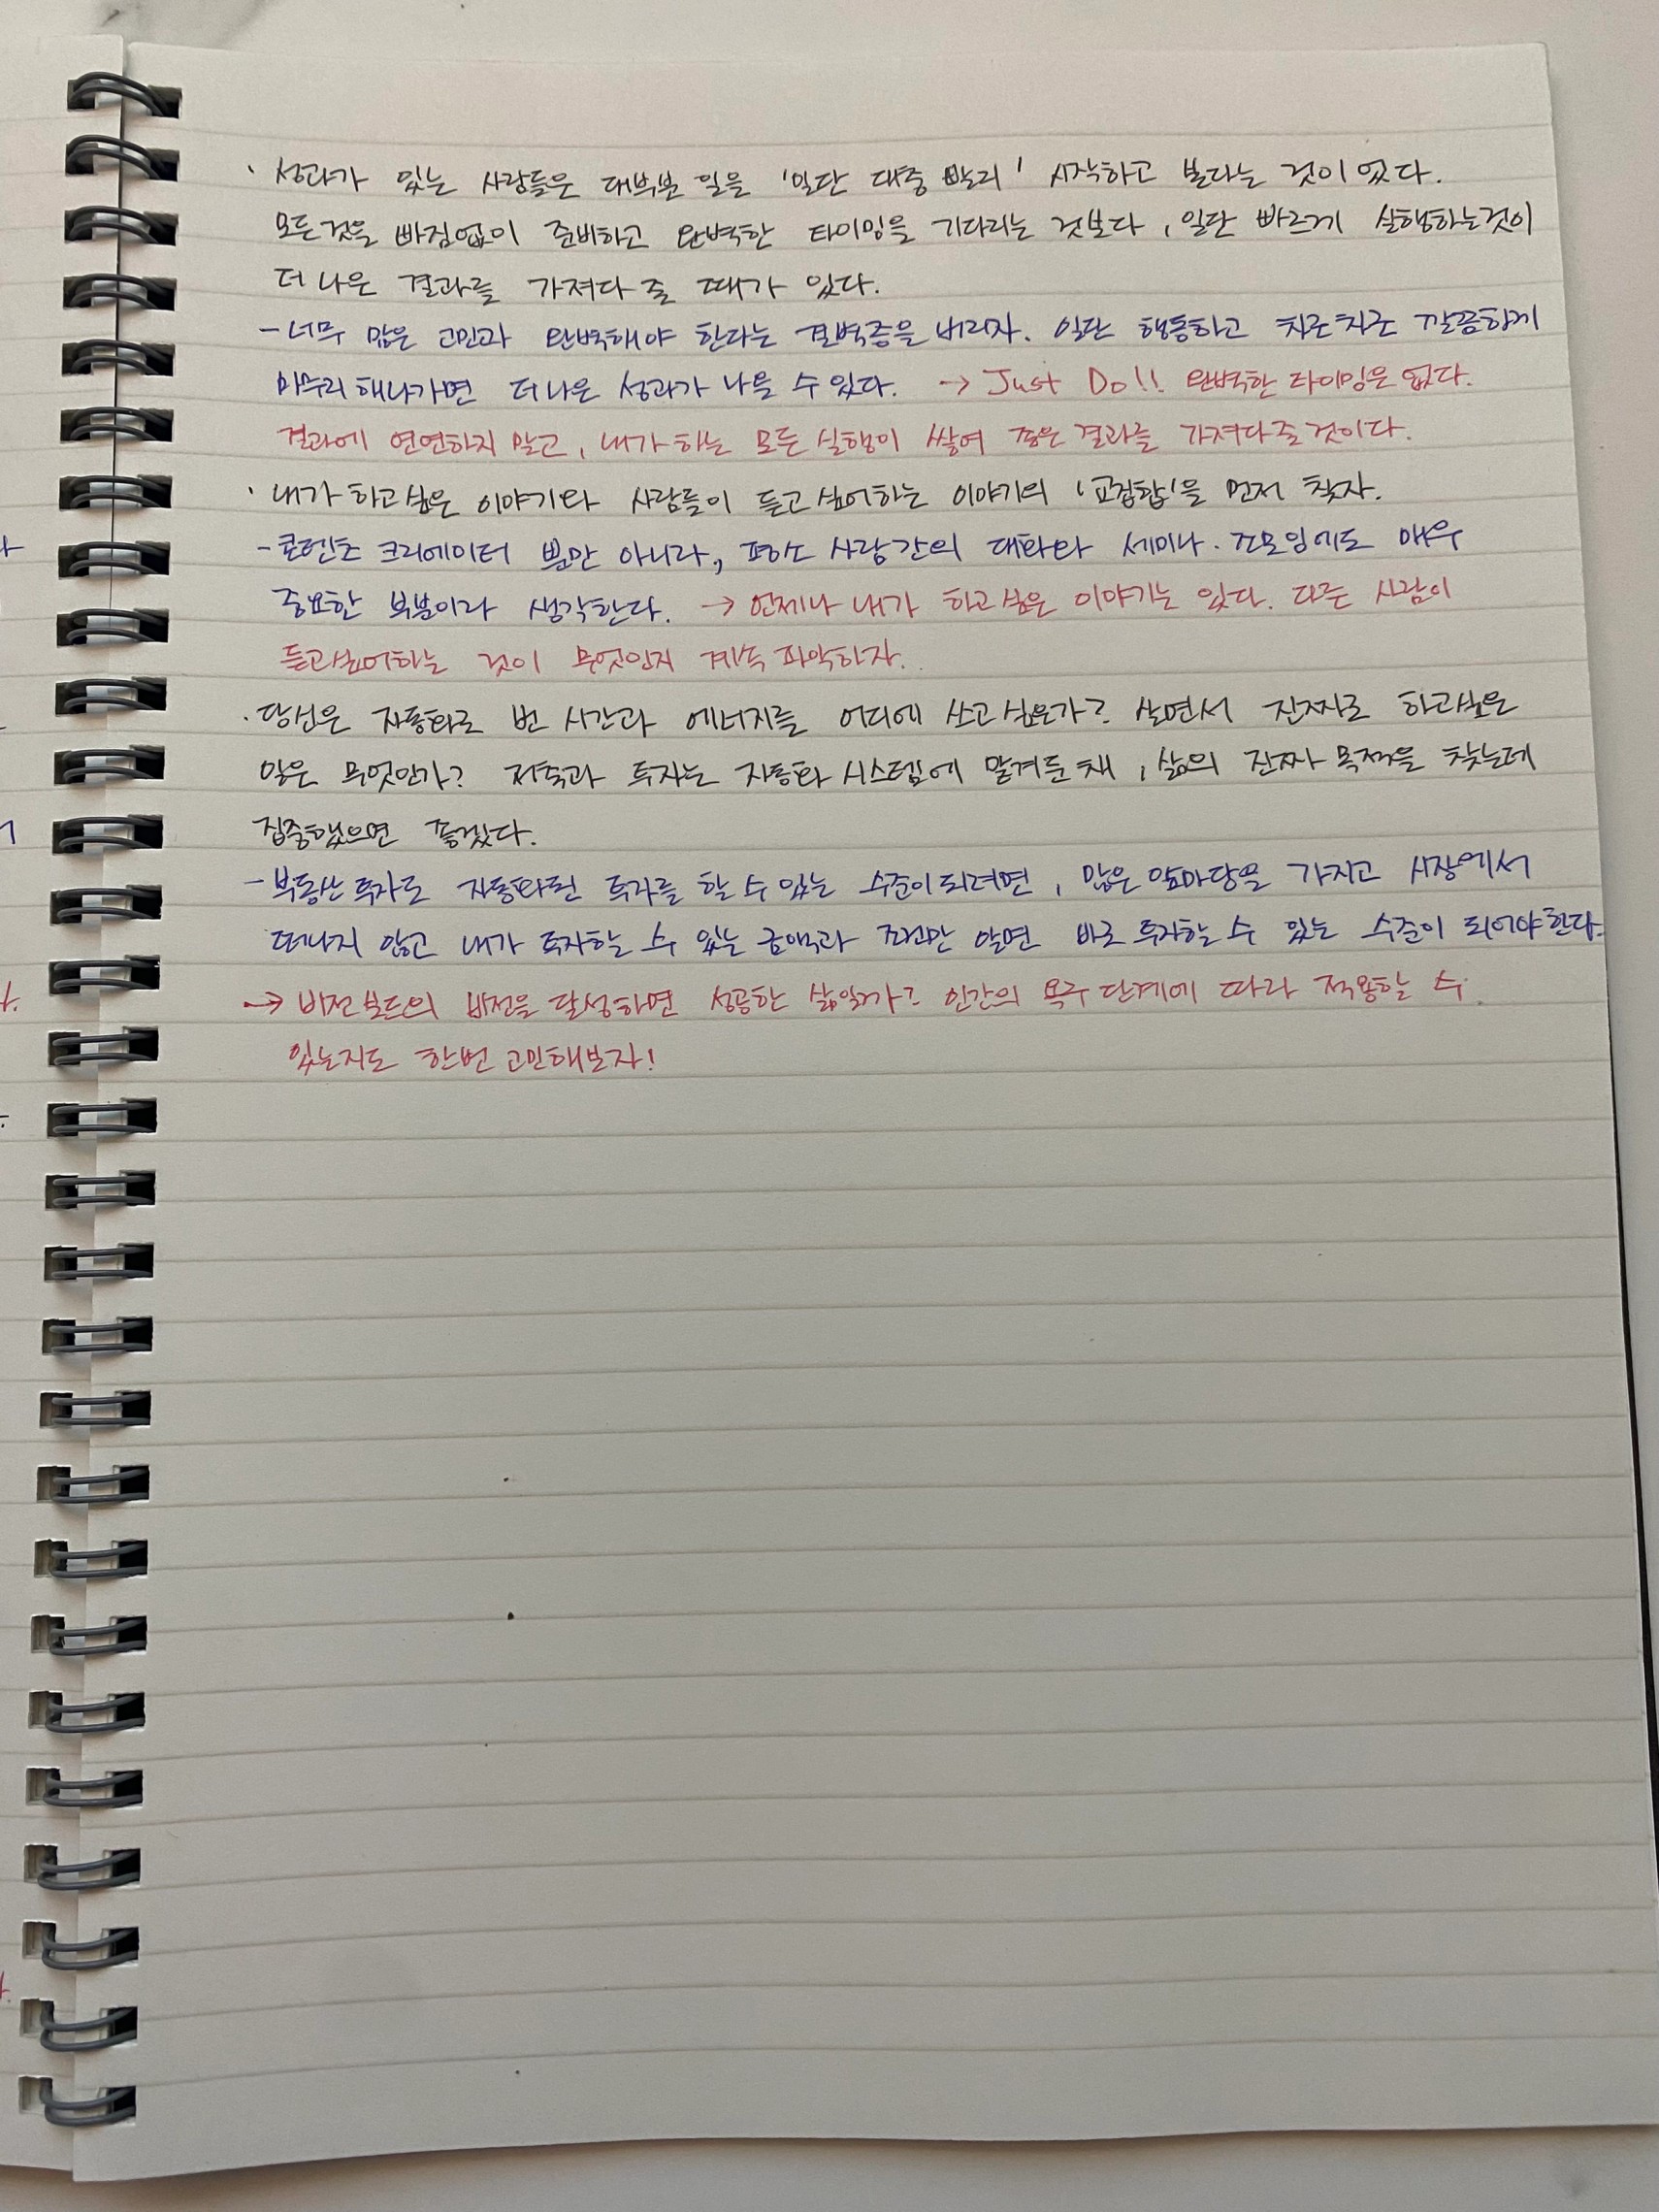 · 성과가 있는 사람들은 대부분 일을 '일단 대충 빨리' 시작하고 본다는 것이었다.
모든것을 빠짐없이 준비하고 완벽한 타이밍을 기다리는 것보다, 일단 빠르게 실행하는것이
더 나은 결과를 가져다 줄 때가 있다.
- 너무 많은 고민과 완벽해야 한다는 결벽증을 버리자. 일단 행동하고 차근차근 깔끔하게
마무리해나가면 더 나은 성과가 나올 수 있다. → Just Do!! 완벽한 타이밍은 없다.
결과에 연연하지 말고, 내가 하는 모든 실행이 쌓여 좋은 결과를 가져다줄 것이다.
· 내가 하고싶은 이야기와 사람들이 듣고 싶어하는 이야기의 '교집합'을 먼저 찾자.
- 콘텐츠 크리에이터 뿐만 아니라, 평소 사람간의 대화와 세미나. 조모임에도 매우
중요한 부분이라 생각한다. → 언제나 내가 하고싶은 이야기는 있다. 다른 사람이
듣고싶어하는 것이 무엇인지 계속 파악하자.
· 당신은 자동화로 번 시간과 에너지를 어디에 쓰고 싶은가? 살면서 진짜로 하고싶은
일은 무엇인가? 저축과 투자는 자동화 시스템에 맡겨둔 채, 삶의 진짜 목적을 찾는데
집중했으면 좋겠다.
- 부동산 투자도 자동화된 투자를 할 수 있는 수준이 되려면, 많은 앞마당을 가지고 시장에서
떠나지 않고 내가 투자할 수 있는 금액과 조건만 알면 바로 투자할 수 있는 수준이 되어야한다.
→ 비전보드의 비전을 달성하면 성공한 삶일까? 인간의 욕구 단계에 따라 적용할 수
있는지도 한번 고민해보자!